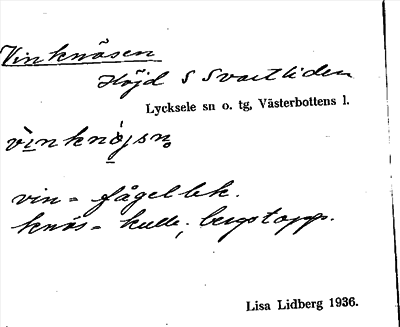 Vinknösen
Höjd S Svartliden
Lycksele sn o. tg, Västerbottens l.
vìnknö̀jsn̥
vin = fågellek.
knös = kulle, bergstopp.
Lisa Lidberg 1936.